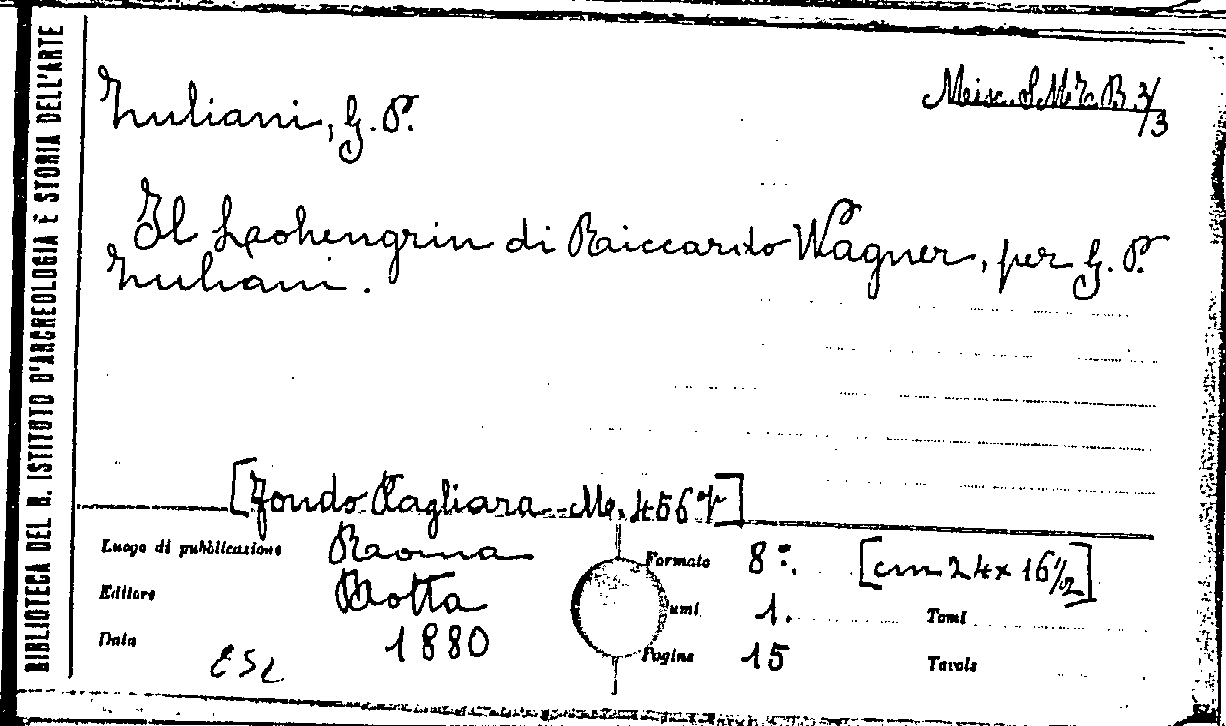 BIBLIOTECA DEL R. ISTITUTO D'ARCHEOLOGIA E STORIA DELL'ARTE
Zuliani, G. P.
Il Lohengrin di Riccardo Wagner, per G. P.
Zuliani.
[Fondo Pagliara
Luogo di pubblicazione Roma
Editore Botta
Data 1880
Formato 8º. [cm 24 x 16 1/2]
umi 1. Tomi
Pagine 15 Tavole